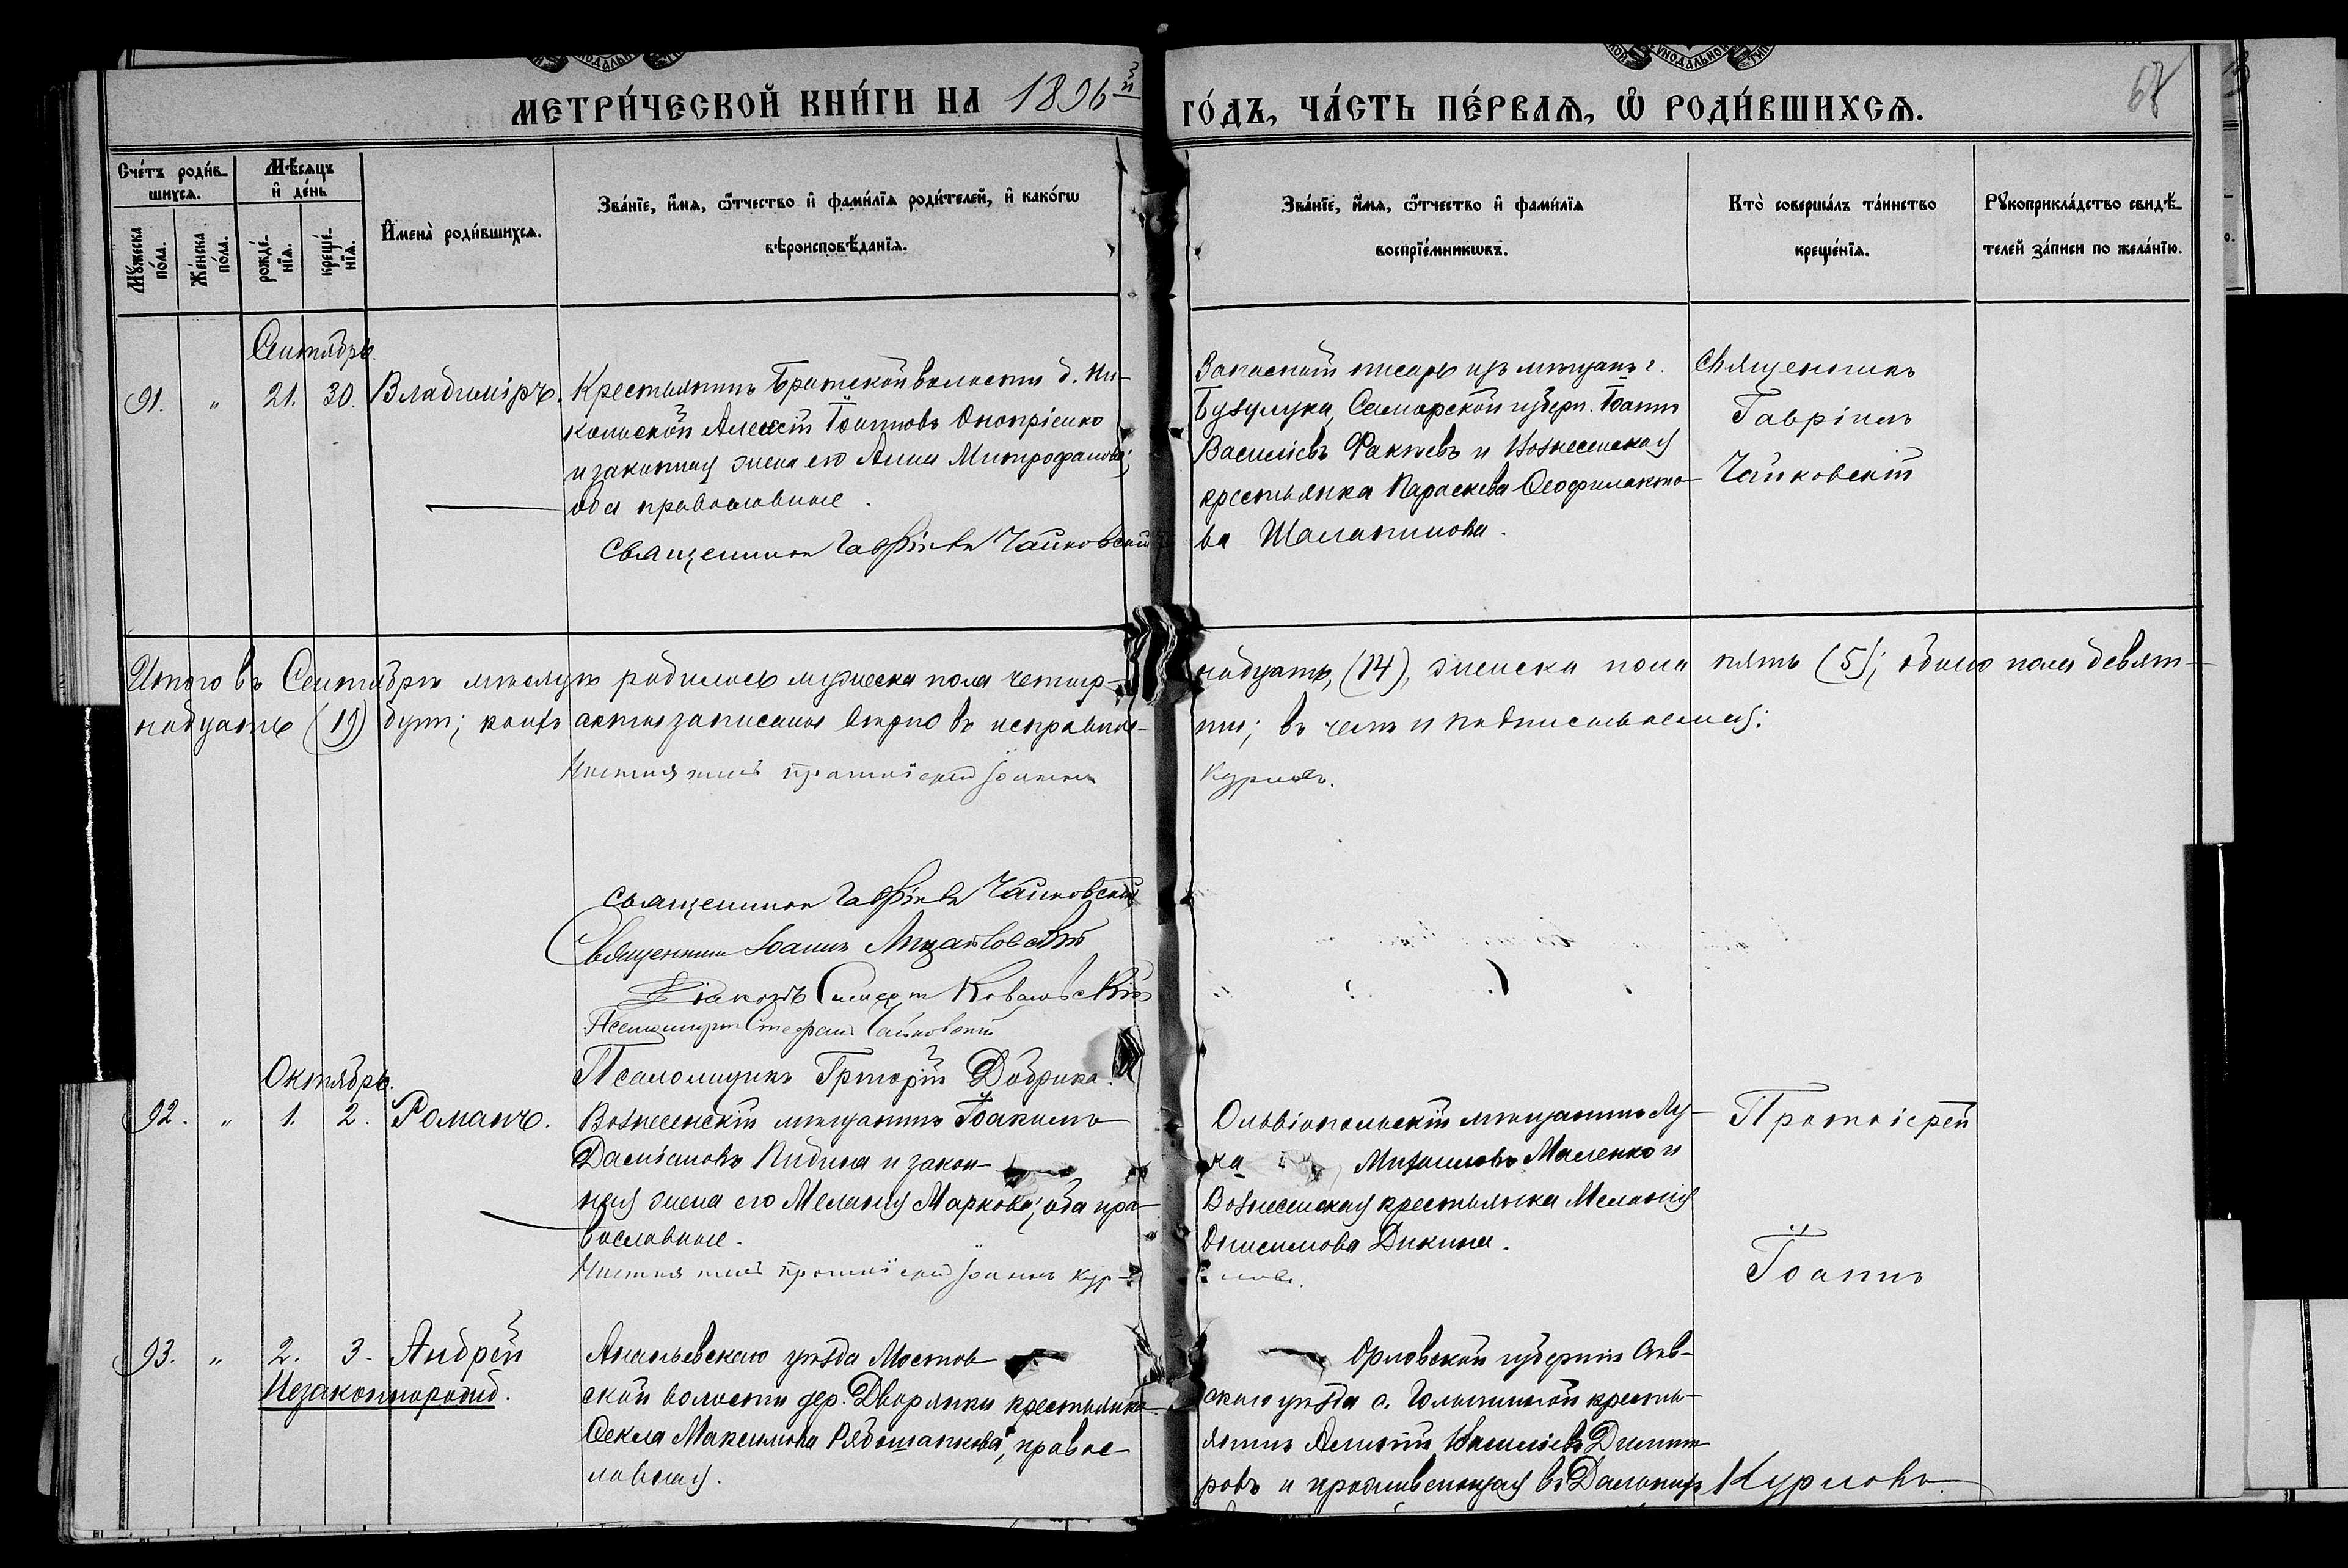 МЕТРИ́ЧЕСКОЙ КНИ́ГИ НА 1896й ГО́ДЪ, ЧА́СТЬ ПЕ́РВАѦ, Ѿ РОДИ́ВШИХСѦ.
68
Сче́тъ роди́в-
шихсѧ.
Мѣсѧцъ
и҆ де́нь
Мꙋ́жеска
по́ла.
Же́нска
по́ла.
рожде́-
нїѧ.
креще́-
нїѧ.
И҆мена̀ роди́вшихсѧ.
Зва́нїе, и҆́мѧ, ѻ҆́тчество и҆ фами́лїѧ роди́телей, и҆ како́гѡ
вѣроисповѣ́данїѧ.
Зва́нїе, и҆́мѧ, ѻ҆́тчество и҆ фами́лїѧ
воспрїе́мникѡвъ.
Кто̀ соверша́лъ та́инство
креще́нїѧ.
Рꙋкоприкла́дство свидѣ́-
телей за́писи по жела́нїю.
Сентябрь.
91. „ 21. 30. Владиміръ.
Крестьянинъ Братской волости д. Ни-
кольской Алексій Іоанновъ Оноприенко
и законная жена его Анна Митрофанова;
оба православные.
Священникъ Гавріилъ Чайковскій
Запасный писарь изъ мѣщанъ г.
Бузулука, Самарской губерн. Іоаннъ
Василіевъ Фактевъ и Вознесенская
крестьянка Параскева Ѳеофилакто-
ва Шалапинова.
Священникъ
Гавріилъ
Чайковскій
Итого въ Сентябрѣ мѣсяцѣ родилось мужеска пола четыр-
надцать (14), женска пола пять (5); обоего пола девят-
надцать (19) душ; коихъ акты записаны вѣрно въ исправнос-
ти; въ чемъ и подписываемся:
Настоятель протоіерей Іоаннъ
Курловъ.
Священникъ Гавріилъ Чайковскій
Священникъ Іоаннъ
Діаконъ Ковалевскій
Псаломщикъ Стефанъ Чайковскій
Псаломщикъ Григорій Добрика.
Октябрь.
92. „ 1. 2. Романъ.
Вознесенскій мѣщанинъ Іоакимъ
Даміановъ Кидина и закон-
ная жена его Меланія Маркова; оба пра-
вославные.
Настоятель протоіерей Іоаннъ Кур-
ловъ.
Ольвіопольскій мѣщанинъ Лу-
ка Михаиловъ Маленко и
Вознесенская крестьянка Меланія
Онисимова Дикина.
Протоіерей
Іоаннъ
93. „ 2. 3. Андрей
Незаконнорожд.
Ананьевскаго уѣзда Мостов-
ской волости дер. Дворянки крестьянка
Ѳекла Максимова Рябошапкова, правос-
лавная.
Орловской губерніи Сѣв-
скаго уѣзда с. крестья-
янинъ Василіевъ Димит-
ровъ и проживающая въ
Курловъ.